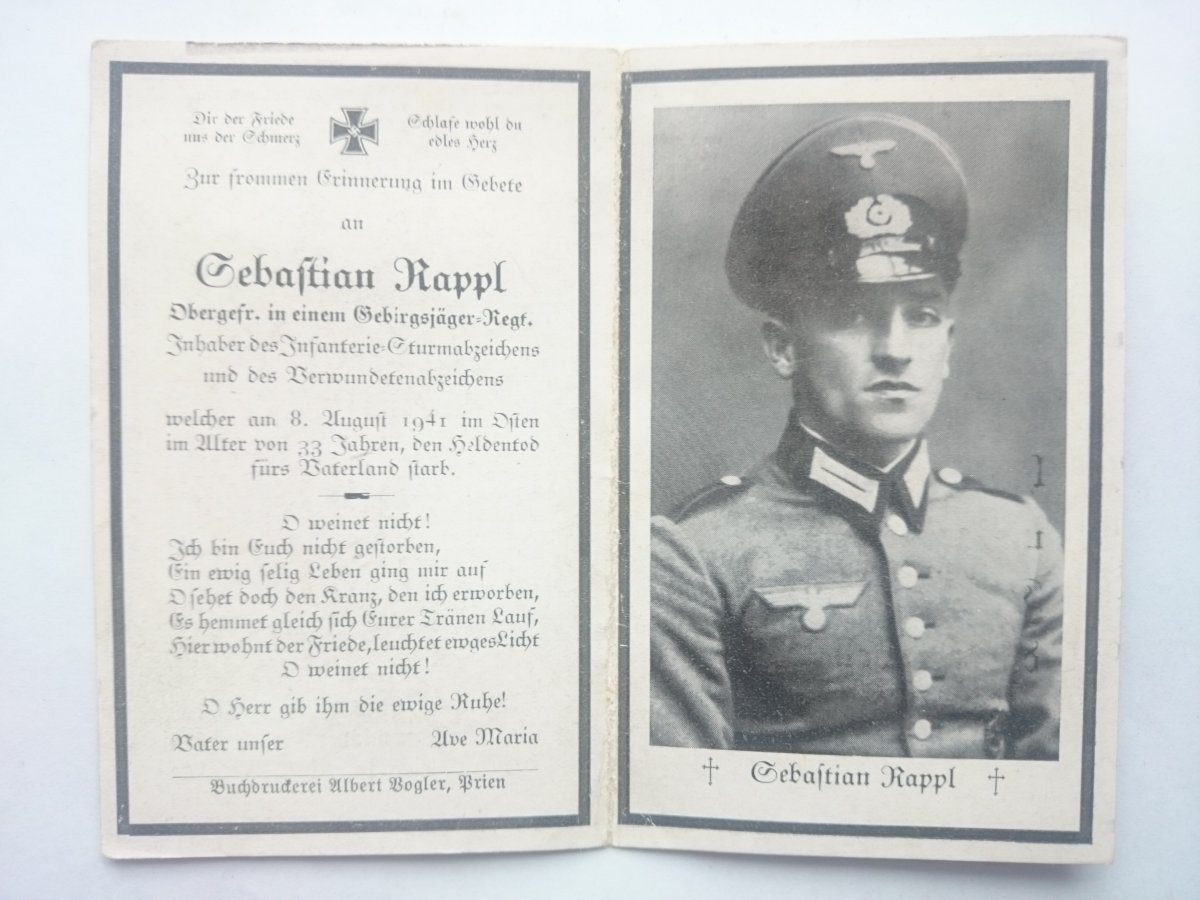 Dir der Friede
uns der Schmerz
Schlafe wohl du
edles Herz
Zur frommen Erinnerung im Gebete
an
Sebastian Rappl
Obergefr. in einem Gebirgsjäger-Regt.
Inhaber des Infanterie-Sturmabzeichens
und des Verwundetenabzeichens
welcher am 8. August 1941 im Osten
im Alter von 33 Jahren, den Heldentod
fürs Vaterland starb.
O weinet nicht!
Ich bin Euch nicht gestorben,
Ein ewig selig Leben ging mir auf
O sehet doch den Kranz, den ich erworben,
Es hemmet gleich sich Eurer Tränen Lauf,
Hier wohnt der Friede, leuchtet ewges Licht
O weinet nicht!
O Herr gib ihm die ewige Ruhe!
Vater unser Ave Maria
Buchdruckerei Albert Vogler, Prien
† Sebastian Rappl †